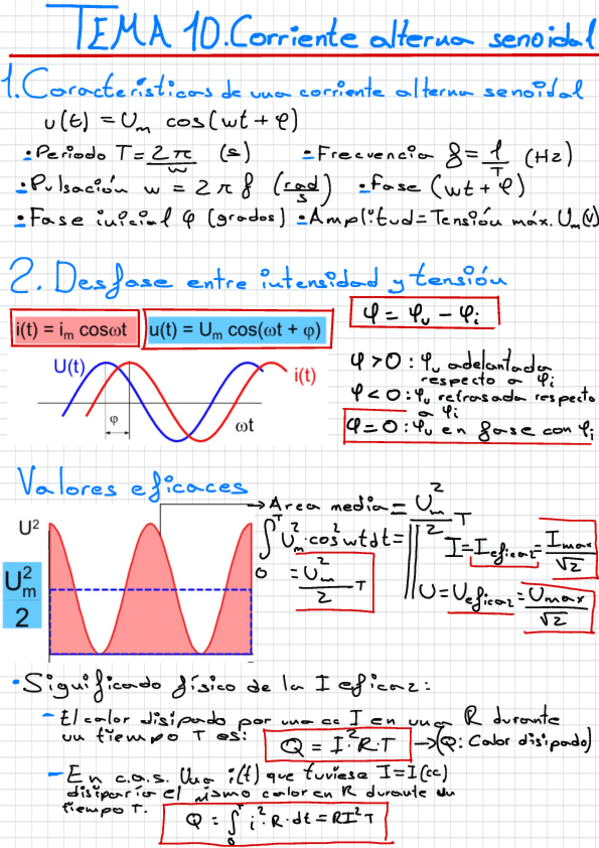 TEMA 10. Corriente alterna senoidal
1. Características de una corriente alterna senoidal
u(t) = Um cos(wt + φ)
• Periodo T = 2π/w (s) • Frecuencia f = 1/T (Hz)
• Pulsación w = 2πf (rad/s) • Fase (wt + φ)
• Fase inicial φ (grados) • Amplitud = Tensión máx. Um (V)
2. Desfase entre intensidad y tensión
i(t) = im cosωt u(t) = Um cos(ωt + φ) φ = φu - φi
U(t) i(t)
φ ωt
φ > 0 : φu adelantada
respecto a φi
φ < 0 : φu retrasada respecto
a φi
φ = 0 : φu en fase con φi
Valores eficaces
U²
Um²/2
→ Area media = Um²/2 T
∫₀ᵀ Um² · cos² wt dt =
= Um²/2 T
I = Ieficaz = Imax/√2
U = Ueficaz = Umax/√2
• Significado físico de la I eficaz:
- El calor disipado por una cc I en una R durante
un tiempo T es: Q = I² · R · T → (Q: Calor disipado)
- En c.a.s. Una i(t) que tuviese I = I(cc)
disiparía el mismo calor en R durante un
tiempo T.
Q = ∫₀ᵀ i² · R · dt = RI²T